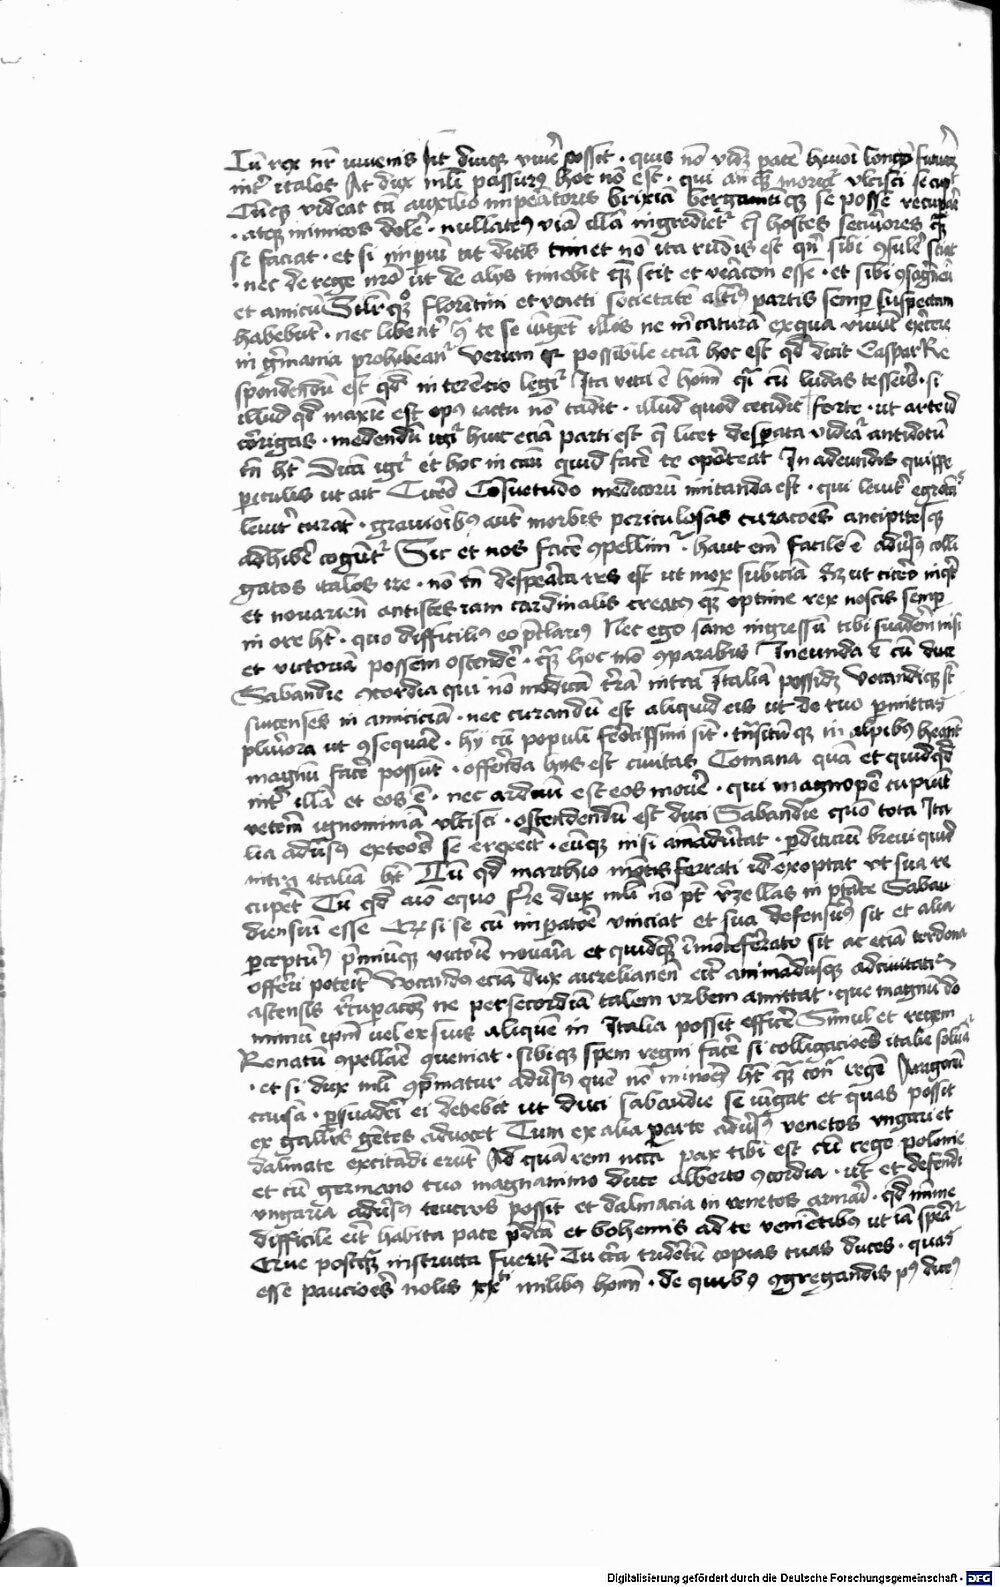 Tū rex nr̄ iuvenis sit diuq; viuē possit · quis nō vidz pacē huioi longo
int̄ italos At dux mlī passurꝰ hoc nō est · qui
Cūq; videat cū auxilio impatoris brixiā bergamūq; se posse recupare
· atq; inimicos dolē · nullatenꝰ viā illā ingrediet̄ q̄ hostes secuiores
se faciat · et si impiū ut dicis timet nō ita rudis est qn̄ sibi ꝯsulē sciat
· nec de rege nr̄o ut de alijs timebit qz̄ scit et esse · et sibi
et amicū Silr̄ florentini et veneti societatē alt̄iꝰ partis semp suspectam
habebūt · nec libent̄ te se iūgēt illos ne m̄caturā ex qua viuūt ex̄cere
in gr̄mania prohibeant̄ Verum possibile eciā hoc est qd̄ dicit Caspar Re
spondendū est qd̄ in terēncio legit̄ Ita vita ē hoim̄ q̄si cū ludas tesseris · si
illud qd̄ maxīe est opꝰ iactu nō cadit · illud quod cecidit forte · ut arte id
corrigas · medendū igit̄ huic eciā parti est q̄ licet despata videat̄ antidotū
tn̄ ht̄ Dicā igit̄ et hoc in cāu quid facē te oporteat In adeundis quippe
piculis ut ait Cicero Cōsuetudo medicorū imitanda est · qui leuit̄ egrotātes
leuit̄ curāt · grauioribꝰ aut̄ morbis periculosas curacōes ancipitesq;
adhibē cogūt̄ Sic et nos facē ꝯpellim̄ · haut em̄ facile ē adūsꝰ colli
gatos italos ire · nō tn̄ despata res est ut mox subiciā Sz ut cicero inqt
et nouarien̄ antistes iam cardinalis creatꝰ qz̄ optime rex noscis semp
in ore ht̄ · quo difficiliꝰ eo p̄clariꝰ Nec ego sane ingressū tibi suadērem nisi
et victoriā possem ostendē · qz̄ hoc mō ꝯparabis Ineunda ē cū duce
Sabaudie ꝯcordia qui nō modicā t̄rā intra Italiā possidz Vocandiq; st̄
suitenses in amiciciā · nec curandū est aliquid eis ut de tuo pmittas
pluriora ut ꝯsequare · hij cū populi ferocissimi sīt · trāsitūq; in alpibus heant
magnū facē possūt · offerēda hijs est ciuitas Comana quā et quidqd̄
int̄ illā et eos ē · nec arduū est eos mouē · qui magnopē cupiūt
vetem̄ ignominiā vlcisci · ostendendū est duci Sabaudie quō tota Ita
lia adūsꝰ ext̄eos se erexit · eūq; nisi āmaduertat · pditurū breui quid
intra italiā ht̄ Tū qd̄ marchio mōtis ferrati id exoptat vt sua re
cupet Tū qd̄ aīo equo fr̄e dux mlī nō pt̄ v̄zellas in ptāte Sabau
diensiū esse Qz si se cū impatore vinciat et sua defensurꝰ sit et alia
pcepturꝰ p̄miūq; victorie nouaria et quidqd̄ ī mōteferrato sit ac eciā terdona
offerri poterit Vocandꝰ eciā dux aurelianen̄ erit animādusq; ad ciuitatis
astensis r̄cupacōz ne per secordiā talem vrbem amittat · que magnū do
minū ipm̄ uel ex suis aliquē in Italia possit efficē Simul et regem
Renatū ꝯpellare ꝯueniat · sibiq; spem regni facē si colligacōes italie soluāt̄
· et si dux mlī ꝯp̄matur adūsꝰ quē nō minorē ht̄ qz̄ cōtr̄ regē Aragonū
causā · psuaderi ei debebit ut duci sabaudie se iūgat et quas possit
ex gallijs gētes aduocet Tum ex alia parte adūsꝰ venetos vngari et
dalmate excitādi erūt Ad quā rem nccā̄ pax tibi est cū rege polonie
et cū germano tuo magnanimo duce alberto ꝯcordia · ut et defendi
vngaria adūsꝰ teucros possit et dalmacia in venetos armari · qd̄ mīme
difficile erit habita pace p̄dcā et bohemis ad te veniētibꝰ ut iā sperat̄
Que postqz̄ instructa fuerit Tu cīta tridētū copias tuas duces · quas
esse pauciores nolis xxti milibꝰ hoim̄ · de quibꝰ ꝯgregandis pꝰ dicetꝰ
Digitalisierung gefördert durch die Deutsche Forschungsgemeinschaft - DFG